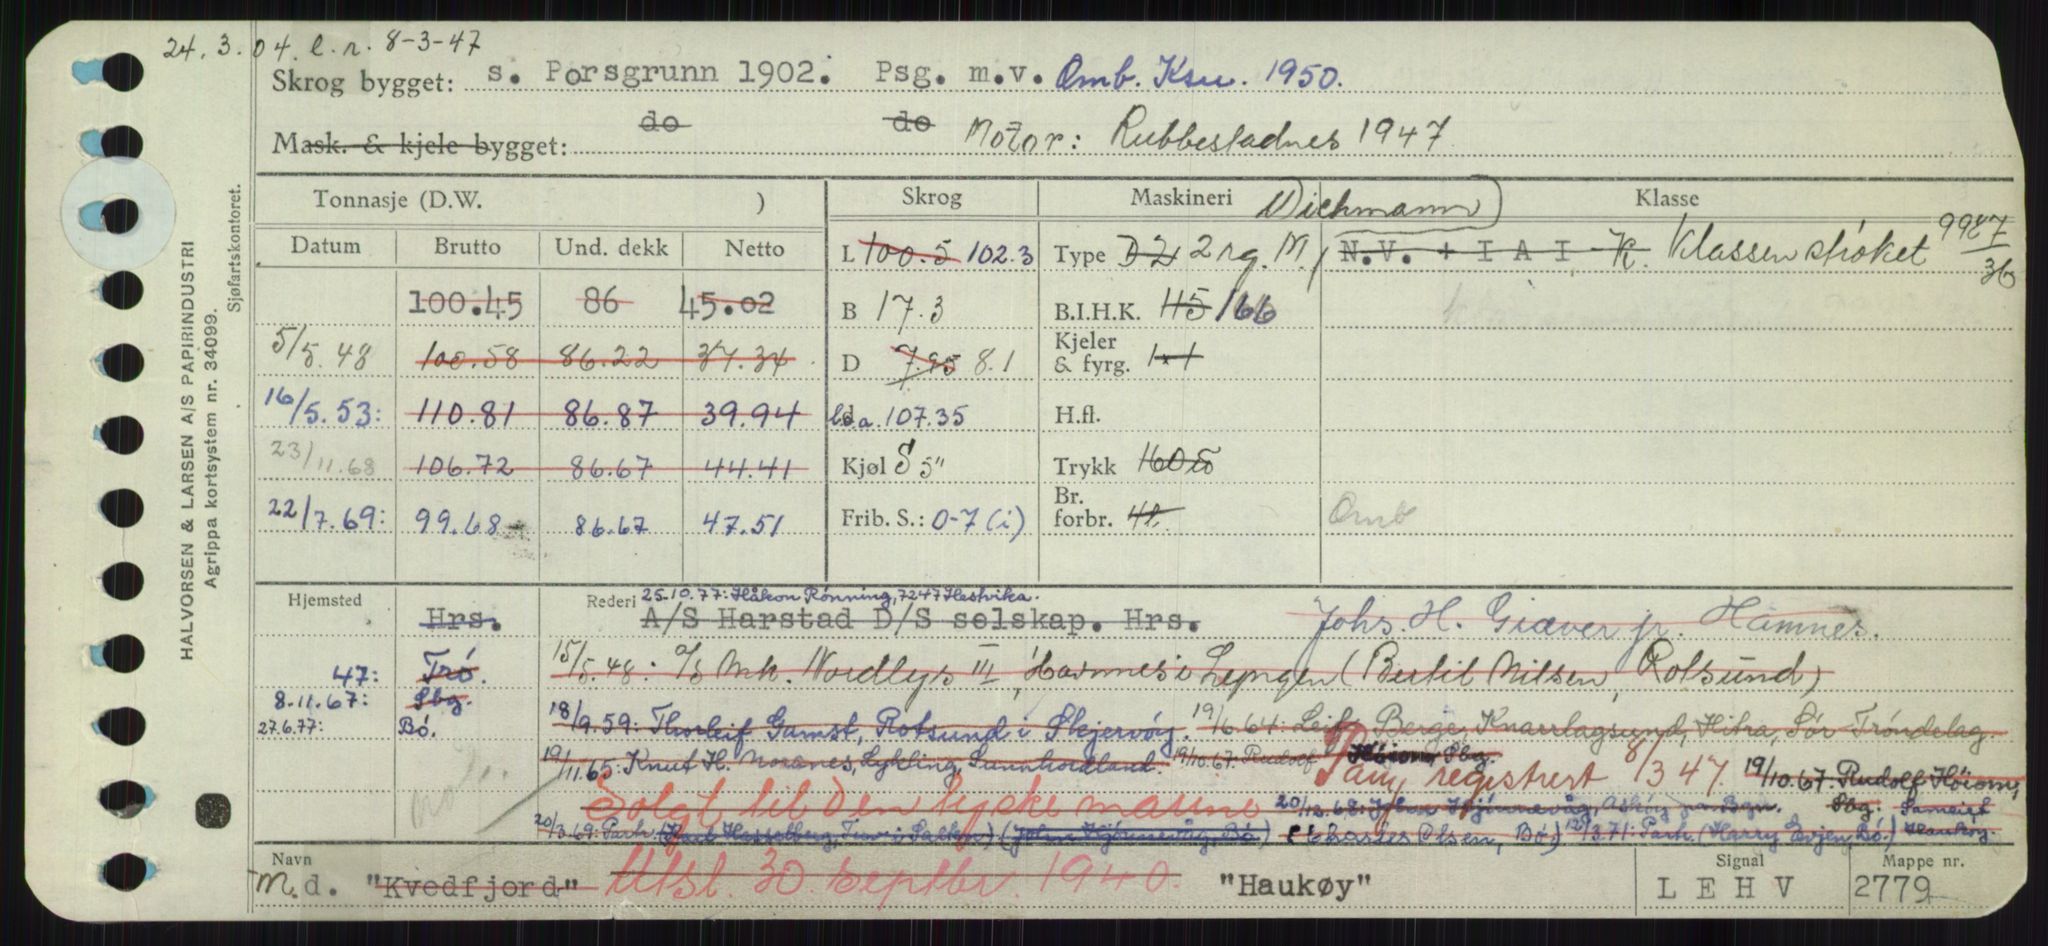 24.3.04. l.r. 8-3-47
Skrog bygget: s. Porsgrunn 1902. Psg. m.v. Omb. Ksu. 1950.
Mask. & kjele bygget: do do Motor: Rubbestadnes 1947
HALVORSEN & LARSEN A/S PAPIRINDUSTRI
Agrippa kortsystem nr. 34099.
Sjøfartskontoret.
Tonnasje (D.W. ) Skrog Maskineri Wichmann Klasse
Datum Brutto Und. dekk Netto L 100.5 102.3 Type 2 rg. M. N.V. + I A I K. Klassen strøket 9987/36
100.45 86 45.02 B 17.3 B.I.H.K. 115 166
5/5.48 100.58 86.22 37.34 D 7.95 8.1 Kjeler & fyrg. 1 x 1
16/5.53: 110.81 86.87 39.94 l.o.a. 107.35 H.fl.
23/11.68 106.72 86.67 44.41 Kjøl S 5" Trykk 160
22/7.69: 99.68 86.67 47.51 Frib. S.: 0-7 (i) Br. forbr. 4t. Omb
Hjemsted Rederi 25.10.77: Håkon Rønning, 7247 Hestvika.
Hrs. A/S Harstad D/S selskap. Hrs. Johs. H. Giæver jr. Hamnes.
47: Trø. 15/5.48: P/S Mk. Nordlys III, Havnnes i Lyngen (Bertil Nilsen, Rotsund)
8.11.67: Sbg.
27.6.77: Bó. 18/9.59: Thorleif Gamst, Rotsund i Skjervøy. 19/6.64: Leif Berge, Knarrlagsund, Hitra, Sør Trøndelag
19/11.65: Knut H. Moranes, Lykling, Sunnhordland. 19/10.67: Rudolf Höiom, Sbg. Panj registrert 8/3 47. 19/10.67: Rudolf Höiom,
Solgt til den tyske marine 20/12.68: Johan Hjønnevåg, Askøy pr. Bgn. Sbg. Sameiet
20/3.69: Partr. (Johan Hjønnevåg, Bó) (Charles Olsen, Bó) 12/3.71: Partr. (Harry Evjen, Bó.) Haukøy.
Navn Signal Mappe nr.
M.d. "Kvedfjord" Utsl. 30. septbr. 1940. "Haukøy" LEHV 2779